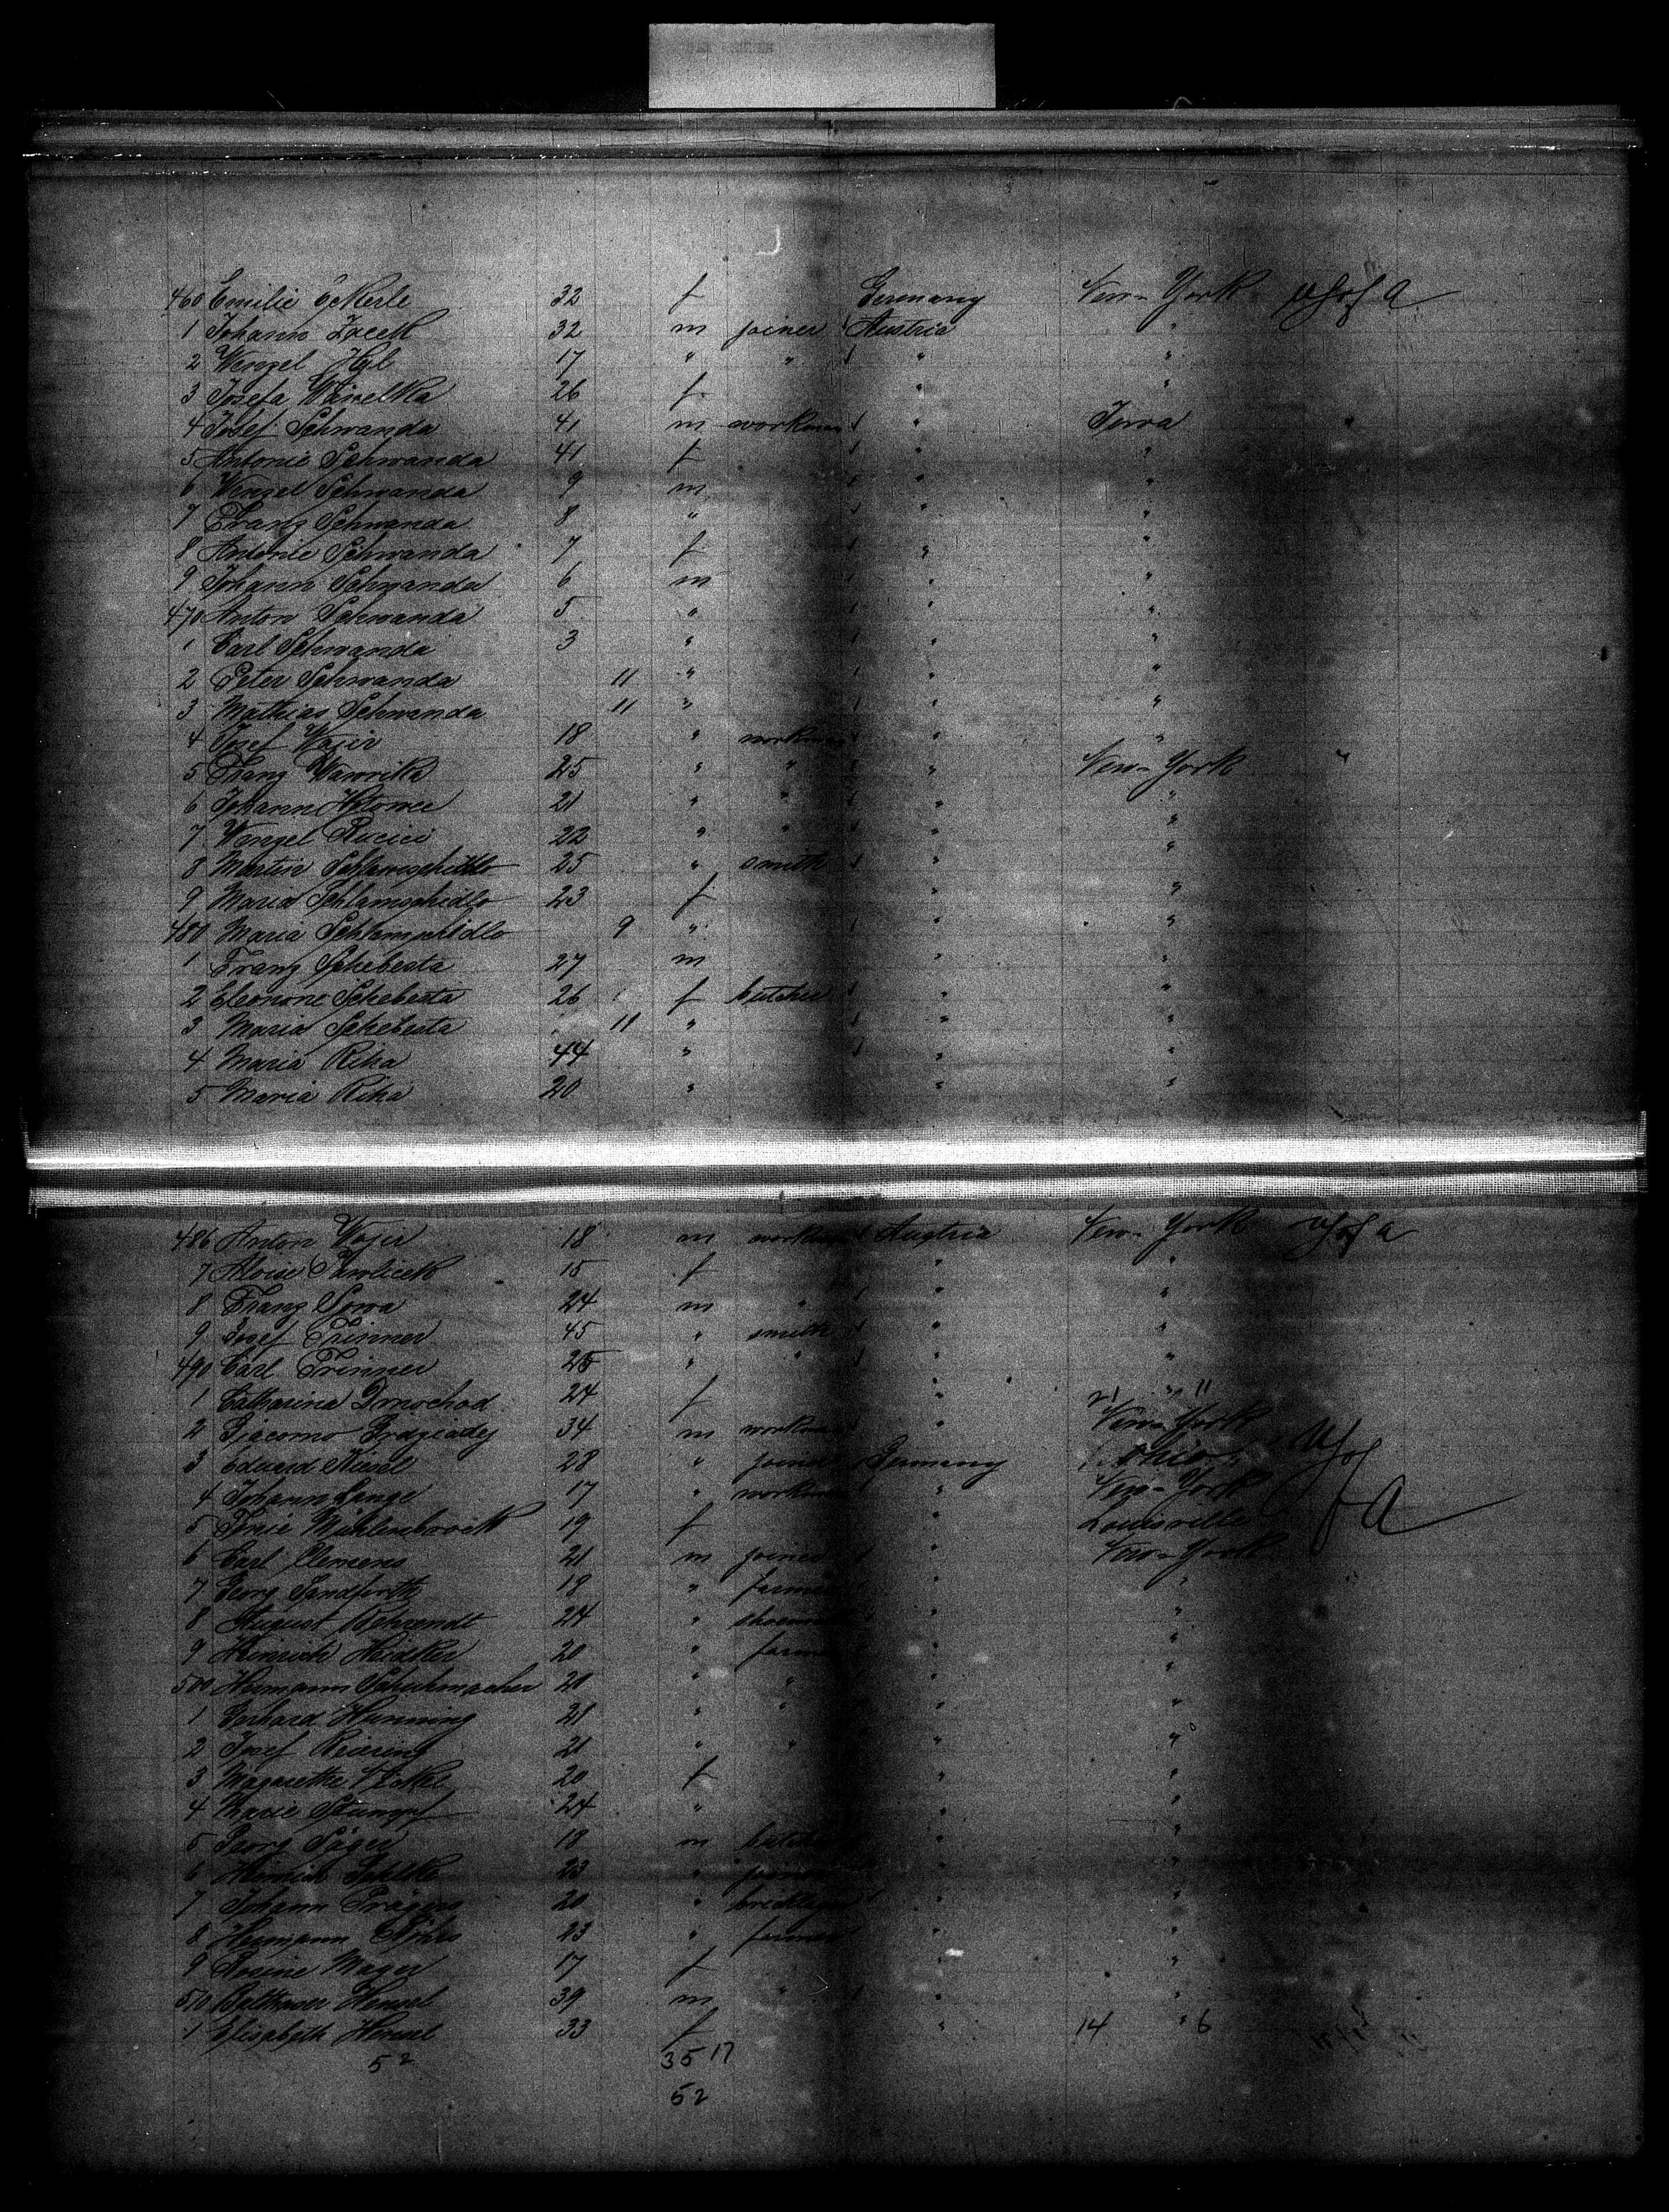 460 Emilie Eckerle 32 f Germany New-York U S of A
1 Johann Zacek 32 m joiner Austria "
2 Wenzel Hgl 17 " " " "
3 Josefa 26 f " "
4 Josef Schwanda 41 m workman " Iowa "
5 Antonie Schwanda 41 f " "
6 Wenzel Schwanda 9 m " "
7 Franz Schwanda 8 " " "
8 Antonie Schwanda 7 f " "
9 Johann Schwanda 6 m " "
470 Anton Schwanda 5 " " "
1 Carl Schwanda 3 " " "
2 Peter Schwanda 11 " " "
3 Mathias Schwanda 11 " " "
4 Josef Wajir 18 " workman " "
5 Franz Wawrika 25 " " " New-York "
6 Johann 21 " " " "
7 Wenzel 22 " " " "
8 Martin 25 " smith " "
9 Maria 23 f " "
480 Maria 9 " " "
1 Franz Schebesta 27 m " "
2 Eleonore Schebesta 26 f butcher " "
3 Maria Schebesta 11 " " "
4 Maria Riha 44 " " "
5 Maria Riha 20 " " "
486 Anton Wajir 18 m workman Austria New-York U S of A
7 Aloise Pawlicek 15 f " "
8 Franz Sowa 24 m " " "
9 Josef Trinner 45 " smith " "
490 Carl Trinner 25 " " " "
1 Catharina Drnochod 24 f " 21 " 11
2 Giacomo 34 m workman " New-York
3 Eduard Kiesel 28 " joiner Germany Ohio U S of A
4 Johann Lange 17 " workman " New-York
5 19 f " Louisville
6 Carl Clemens 21 m joiner " New-York
7 Georg Sandforth 19 " farmer " " "
8 August Behrendt 24 " " "
9 Heinrich Heidker 20 " farmer " "
500 Hermann Schuhmacher 20 " " " "
1 Gerhard Hunning 21 " " " "
2 Josef Reising 21 " " " "
3 Magarethe 20 f " "
4 Marie Stumpf 24 " " "
5 Georg Jäger 18 m butcher " "
6 Heinrich 23 " farmer " "
7 Johann 20 " " "
8 Hermann 23 " farmer " "
9 Rosine Mager 17 f " "
510 Balthaser Hensel 39 m " " "
1 Elisabeth Hensel 33 f " 14 " 6
52 35 17
52